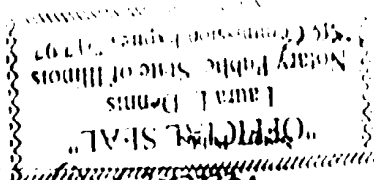 "OFFICIAL SEAL"
Laura L. Dennis
Notary Public, State of Illinois
Commission Expires